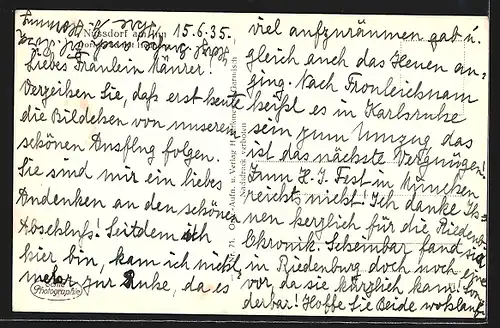 Nussdorf a. Inn, 15.6.35.
Liebes Fräulein
Verzeihen Sie, daß erst heute
die Bildchen von unserem
schönen Ausflug folgen.
Sie sind mir ein liebes
Andenken an den schönen
Abschluß! Seitdem ich
hier bin, kam ich nicht
mehr zur Ruhe, da es
Echte
Photographie
viel aufzuräumen gab u.
gleich auch das Heuen an-
ging. Nach Fronleichnam
heißt es in Karlsruhe
sein zum Umzug das
ist das nächste Vergnügen!
Zum H. J. Fest in München
reichts nicht! Ich danke Ih-
nen herzlich für die Riedenb.
Chronik. Scheinbar fand sich
in Riedenburg doch noch eine
vor, da sie kürzlich kam! Son-
derbar! Hoffe Sie Beide wohlauf